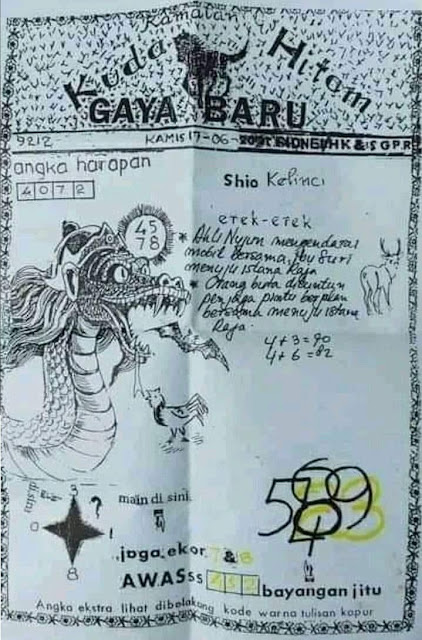 Kamalan
Kuda Hitam
GAYA BARU
9212 KAMIS 17-06-
angka harapan
4072
Shio Kelinci
45
78
etek-etek
* Ahli Nujum mengendarai
mobil bersama Ibu Suri
menuju Istana Raja
* Orang buta dituntun
penjaga pintu berjalan
bersama menuju istana
Raja.
4+3=90
4+6=82
disini
3
?
0
1
8
main di sini
jaga ekor 7 & 8
AWASss bayangan jitu
Angka ekstra lihat dibelakang kode warna tulisan kapur